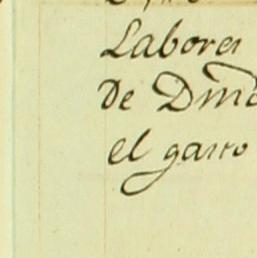 Labores
de Dm
el gasto